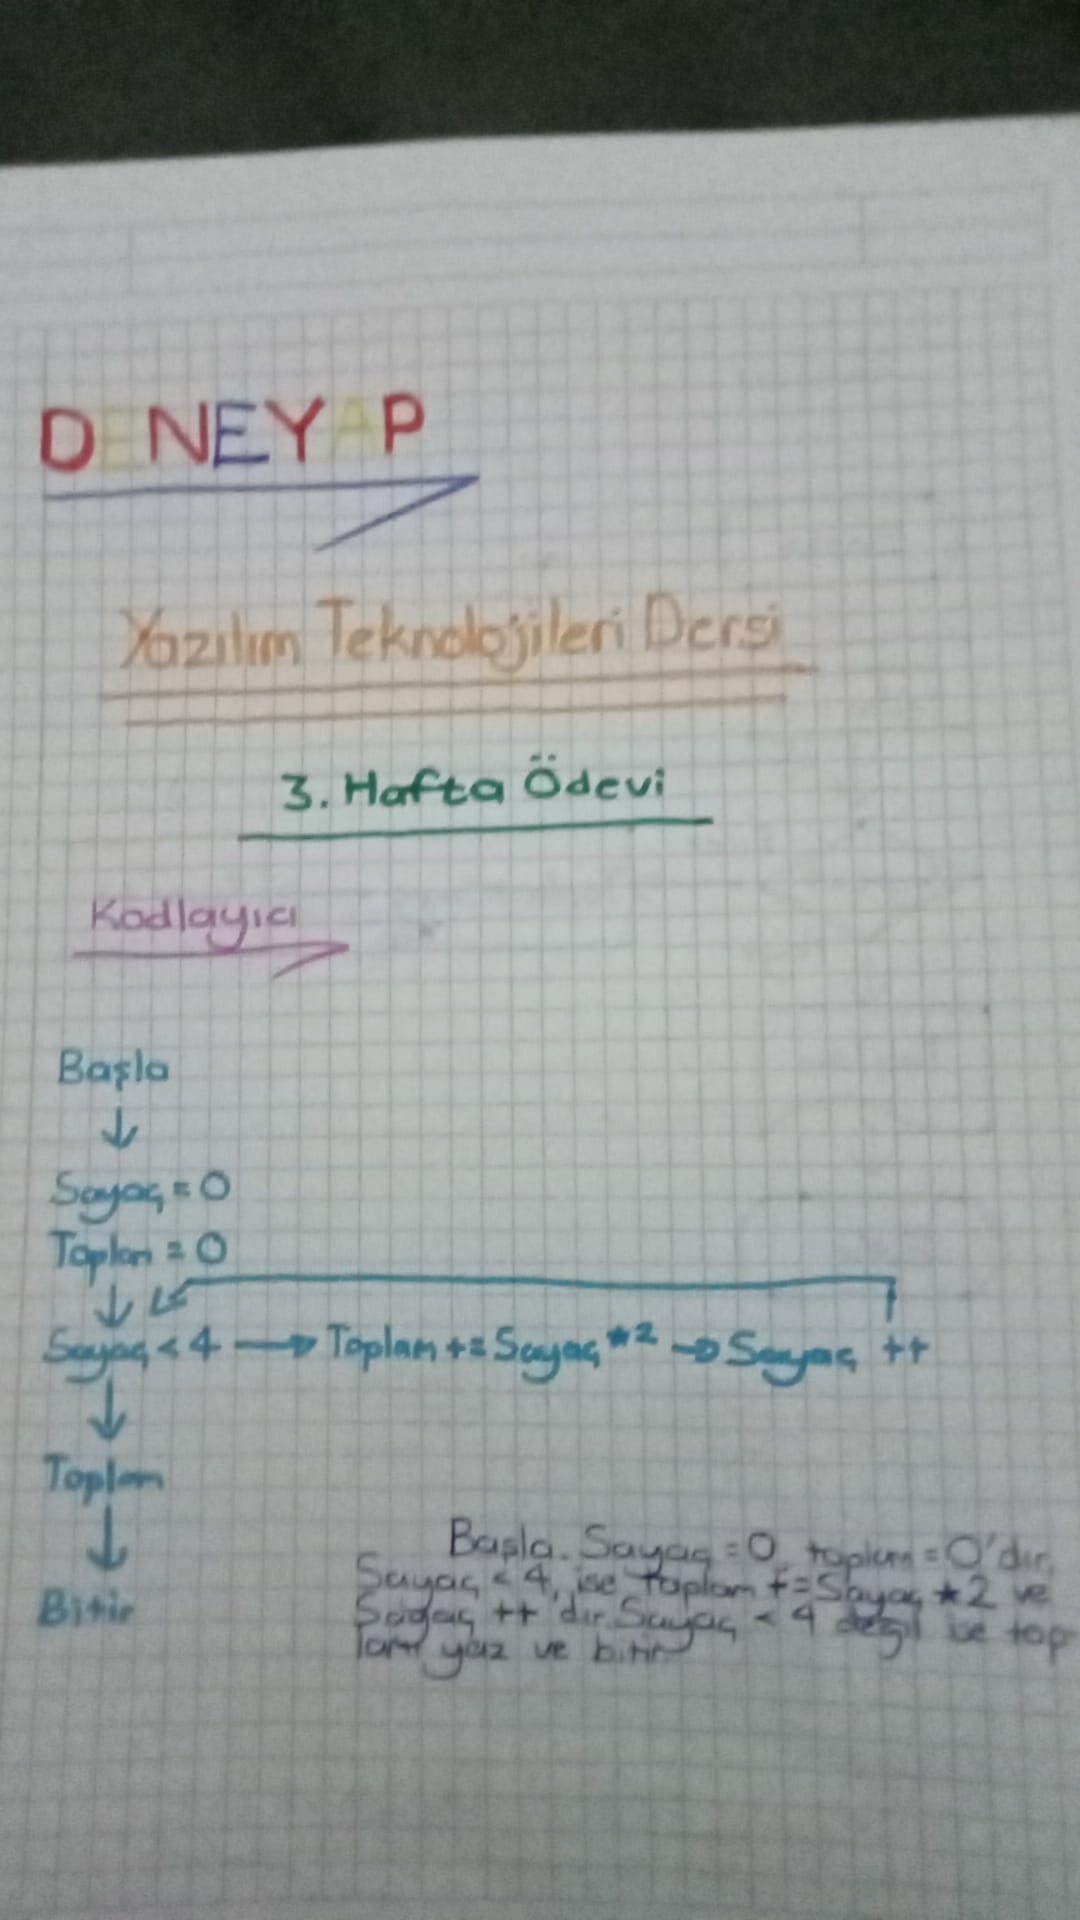 DENEYAP
Yazılım Teknolojileri Dersi
3. Hafta Ödevi
Kodlayıcı
Başla
↓
Sayaç = 0
Toplam = 0
↓
Sayaç < 4 → Toplam += Sayaç *2 → Sayaç ++
↓
Toplam
↓
Bitir
Başla. Sayaç = 0, toplam = 0'dır.
Sayaç < 4, ise Toplam += Sayaç * 2 ve
Sayaç ++ dır. Sayaç < 4 değil ise top
lamı yaz ve bitir